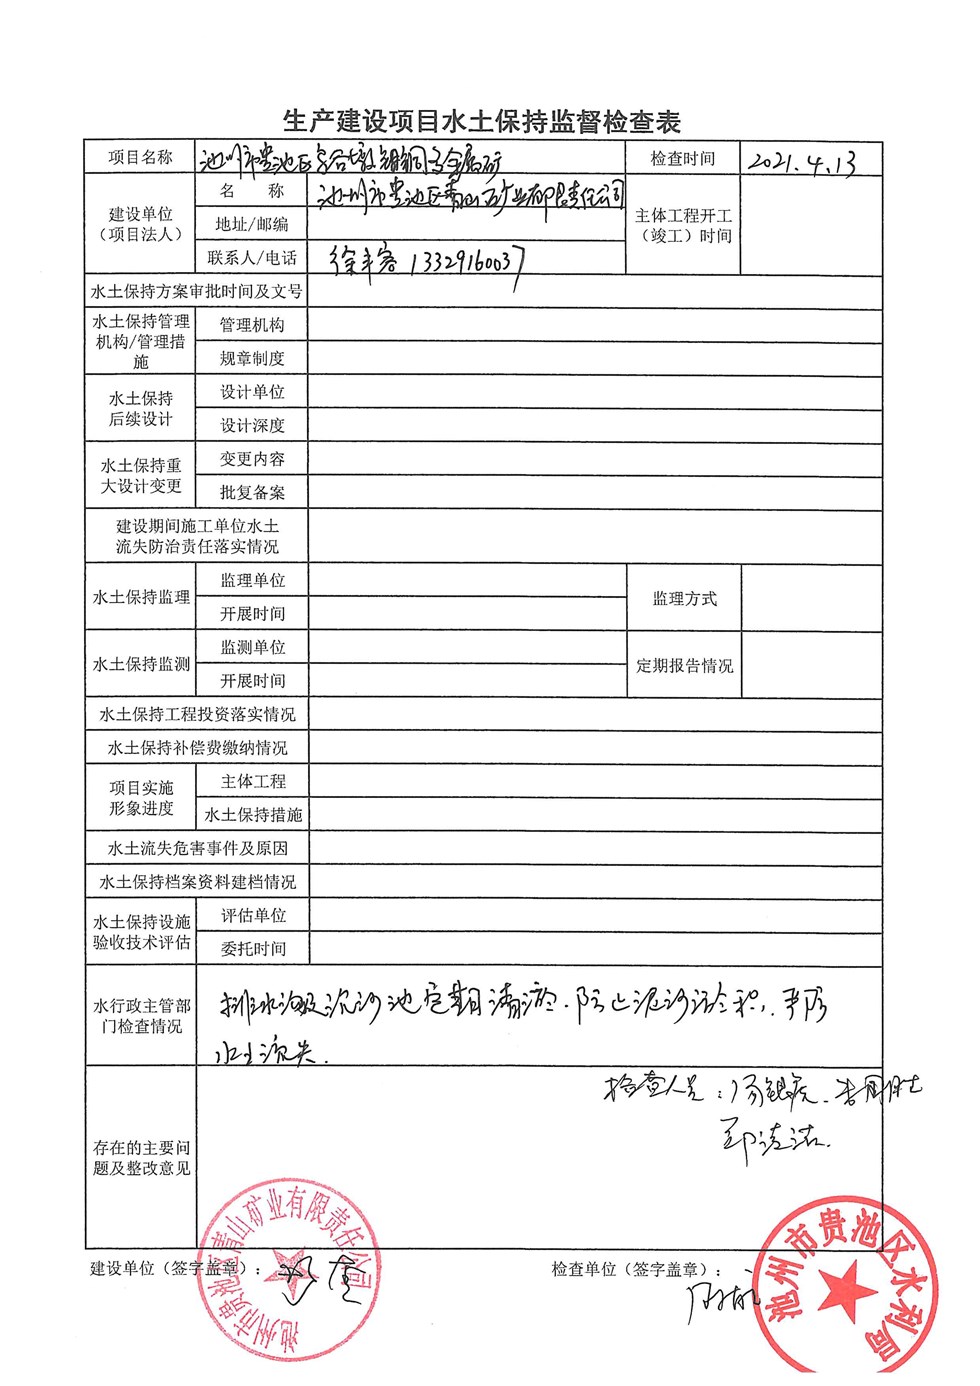 生产建设项目水土保持监督检查表
项目名称
检查时间
2021.4.13
建设单位
（项目法人）
名 称
池州市贵池区青山矿业有限责任公司
地址/邮编
联系人/电话
13329160037
主体工程开工
（竣工）时间
水土保持方案审批时间及文号
水土保持管理
机构/管理措
施
管理机构
规章制度
水土保持
后续设计
设计单位
设计深度
水土保持重
大设计变更
变更内容
批复备案
建设期间施工单位水土
流失防治责任落实情况
水土保持监理
监理单位
开展时间
监理方式
水土保持监测
监测单位
开展时间
定期报告情况
水土保持工程投资落实情况
水土保持补偿费缴纳情况
项目实施
形象进度
主体工程
水土保持措施
水土流失危害事件及原因
水土保持档案资料建档情况
水土保持设施
验收技术评估
评估单位
委托时间
水行政主管部
门检查情况
排水沟及沉沙池定期清淤，防止泥沙淤积，严防
水土流失.
存在的主要问
题及整改意见
检查人员：
建设单位（签字盖章）：
池州市贵池区青山矿业有限责任公司
检查单位（签字盖章）：
池州市贵池区水利局